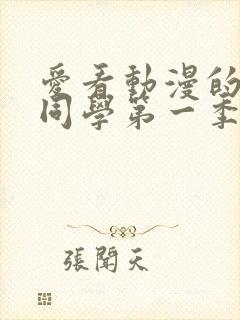 愛看動漫的
同學第一季
張聞天